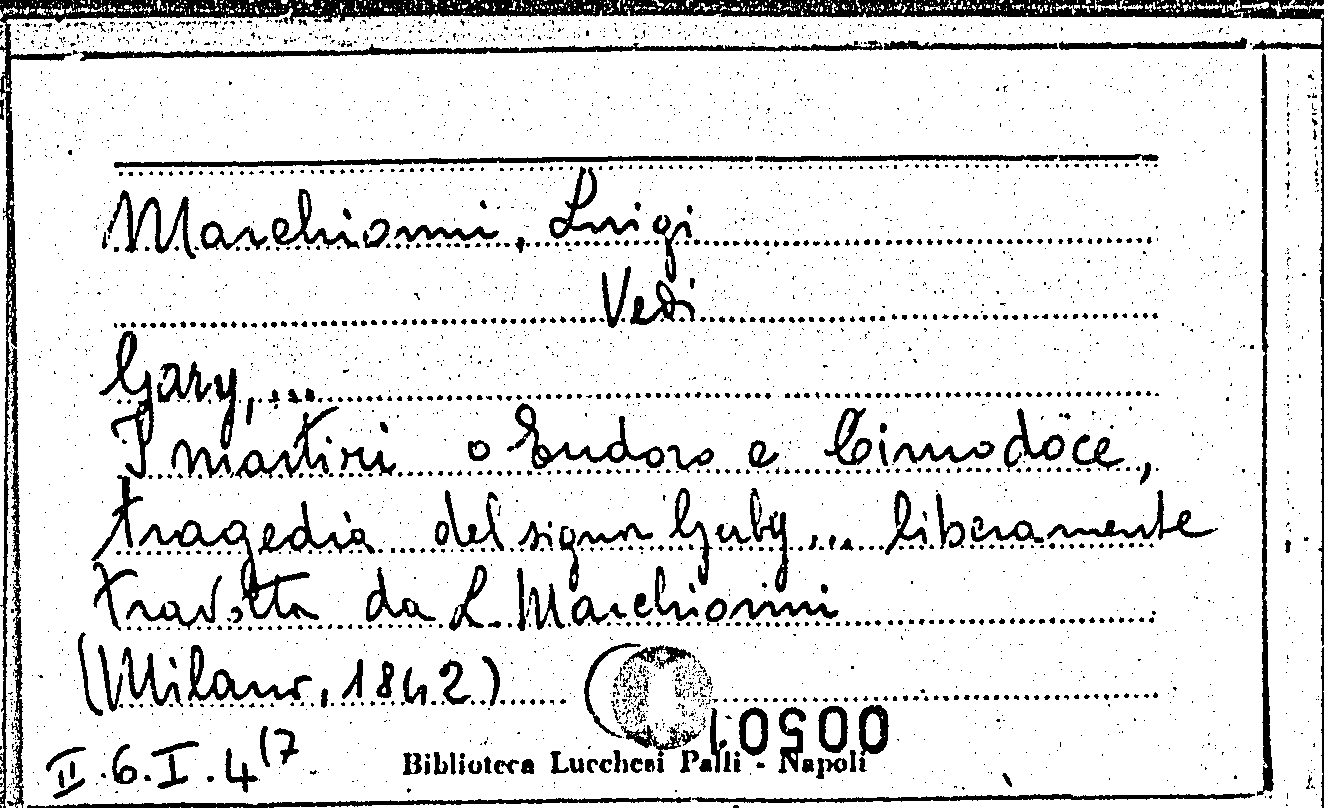 Marchionni, Luigi
Vedi
Gary, ...
I martiri o Eudoro e Cimodöce,
tragedia del signor Garby ... liberamente
tradotta da L. Marchionni
(Milano, 1842)
00501
II.6.I.4(7
Biblioteca Lucchesi Palli - Napoli